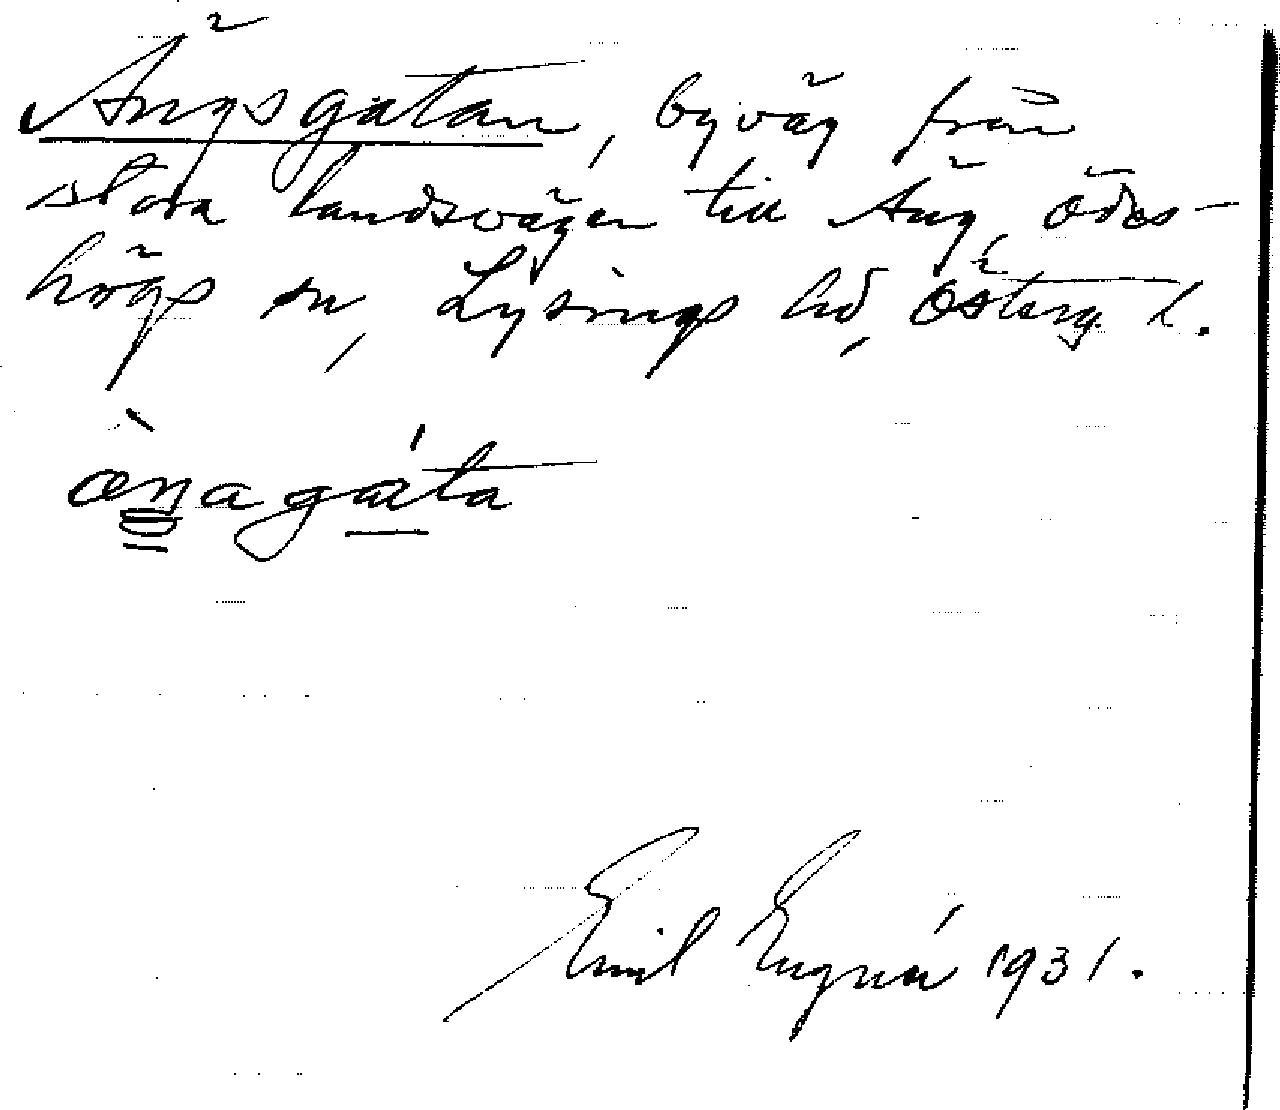 Ängsgatan, byväg från
stora landsvägen till Äng, Ödes-
högs sn, Lysings hd, Österg. l.
æ̀nagáta
Emil Engnér 1931.